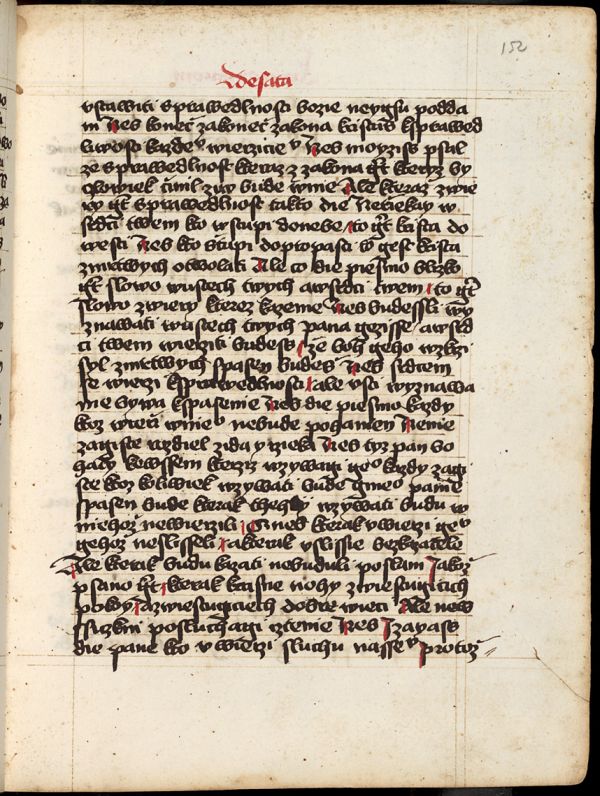 152
Desata
vstawiti sprawedlnosti bozie neyigsu podda
ni Nes koneč zakoneč zakona kristus ksprawed
lnosti kazde° wierzicie° Nes moyziss psal
ze sprawedlnost kteraz z zakona gt kteryz by
człowiek činil ziw bude w nie Ale kteraz z wie
ry gt sprawedlnost takto die Nerziekay w
srdci twem kto wstupi donebe to gt krista do
westi Nes kto stupi dopropasti to gest krista
zmrtwych otwolati Ale co die piesmo blizko
gt slowo wustech twych awsrdci twem to gt
slowo z wiery kterez kazeme Nes budessli wy
znawati wustech twych pana gezisse awsrd
ci twem wierziti budess ze boh geho wzkrzi
syl zmrtwych spasen budes Nes srdcem
se wierzi ksprawedlnosti ale vsti wyznawa
nie bywa kspasenie Nes die piesmo kazdy
ktoz wierzi wnie° nebude pohanien Nenie
zagiste rozdiel zida y rzieka Nes tyz pan bo
haty kewssem kterziz wzywagi ge° kazdy zagi
ste ktoz koliwiek wzywati bude gmeno panie
spasen bude kterak tehdy wzywati budu w
niehoz newierzili Aneb kterak vwierzi ge°
gehoz neslisseli akterak vslissie bezkazatele
Ale kterak budu kazati nebuduli poslani Jakoz
psano gt kterak krasne nohy zwiestugicich
pokoy azwiestugiciech dobre wieci Ale new
ssizkni posluchagi cztenie Nes Jzayass
die pane kto vwierzi sluchu nasse° protoz